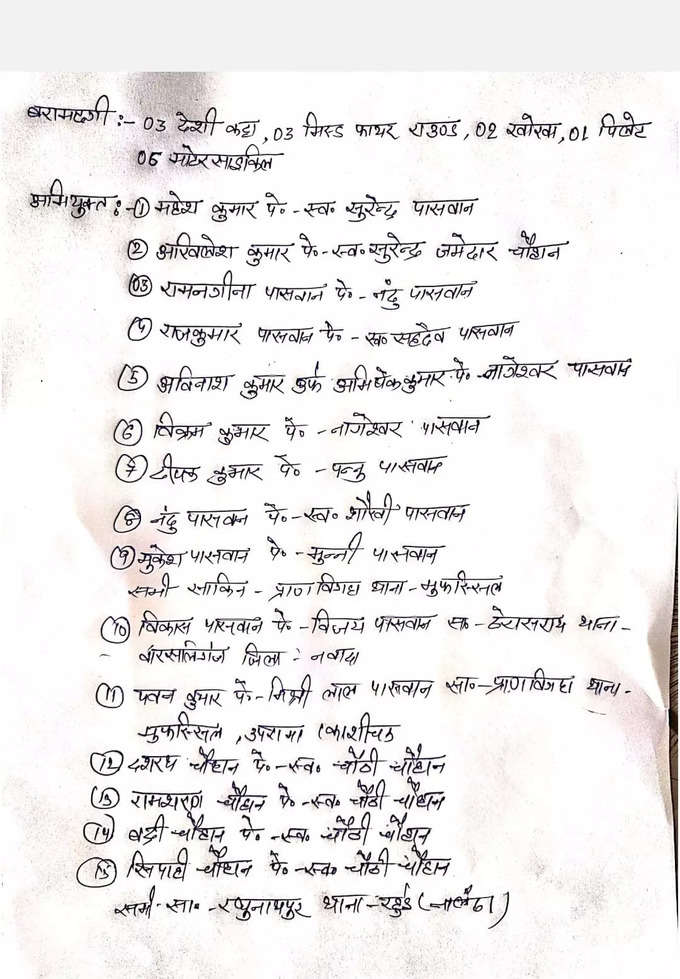 बरामदगी :- 03 देशी कट्टा, 03 मिस्ड फायर राउण्ड, 02 खोखा, 01 पिलेट
06 मोटरसाइकिल
अभियुक्त :- (1) महेश कुमार पे०-स्व० सुरेन्द्र पासवान
(2) अखिलेश कुमार पे०-स्व० सुरेन्द्र जमेदार चौहान
(03) रामनगीना पासवान पे०-नंदु पासवान
(4) राजकुमार पासवान पे०-स्व० सहदेव पासवान
(5) अविनाश कुमार उर्फ अभिषेक कुमार पे०-नागेश्वर पासवान
(6) विक्रम कुमार पे०-नागेश्वर पासवान
(7) दीपक कुमार पे०-पन्नु पासवान
(8) नंदु पासवान पे०-स्व० शौखी पासवान
(9) मुकेश पासवान पे०-मुन्नी पासवान
सभी साकिन-प्राणविगहा थाना-मुफस्सिल
(10) विकास पासवान पे०-विजय पासवान सा०-ढेरासराय थाना-
वारसलिगंज जिला:नवादा
(11) पवन कुमार पे०-मिश्री लाल पासवान सा०-प्राणविगहा थाना-
मुफस्सिल, उपरामा (काशीचक
(12) दशरथ चौहान पे०-स्व० चौठी चौहान
(13) रामशरण चौहान पे०-स्व० चौठी चौहान
(14) बद्री चौहान पे०-स्व० चौठी चौहान
(15) सिपाही चौहान पे०-स्व० चौठी चौहान
सभी सा०-रघुनाथपुर थाना-रहुई (नालंदा)